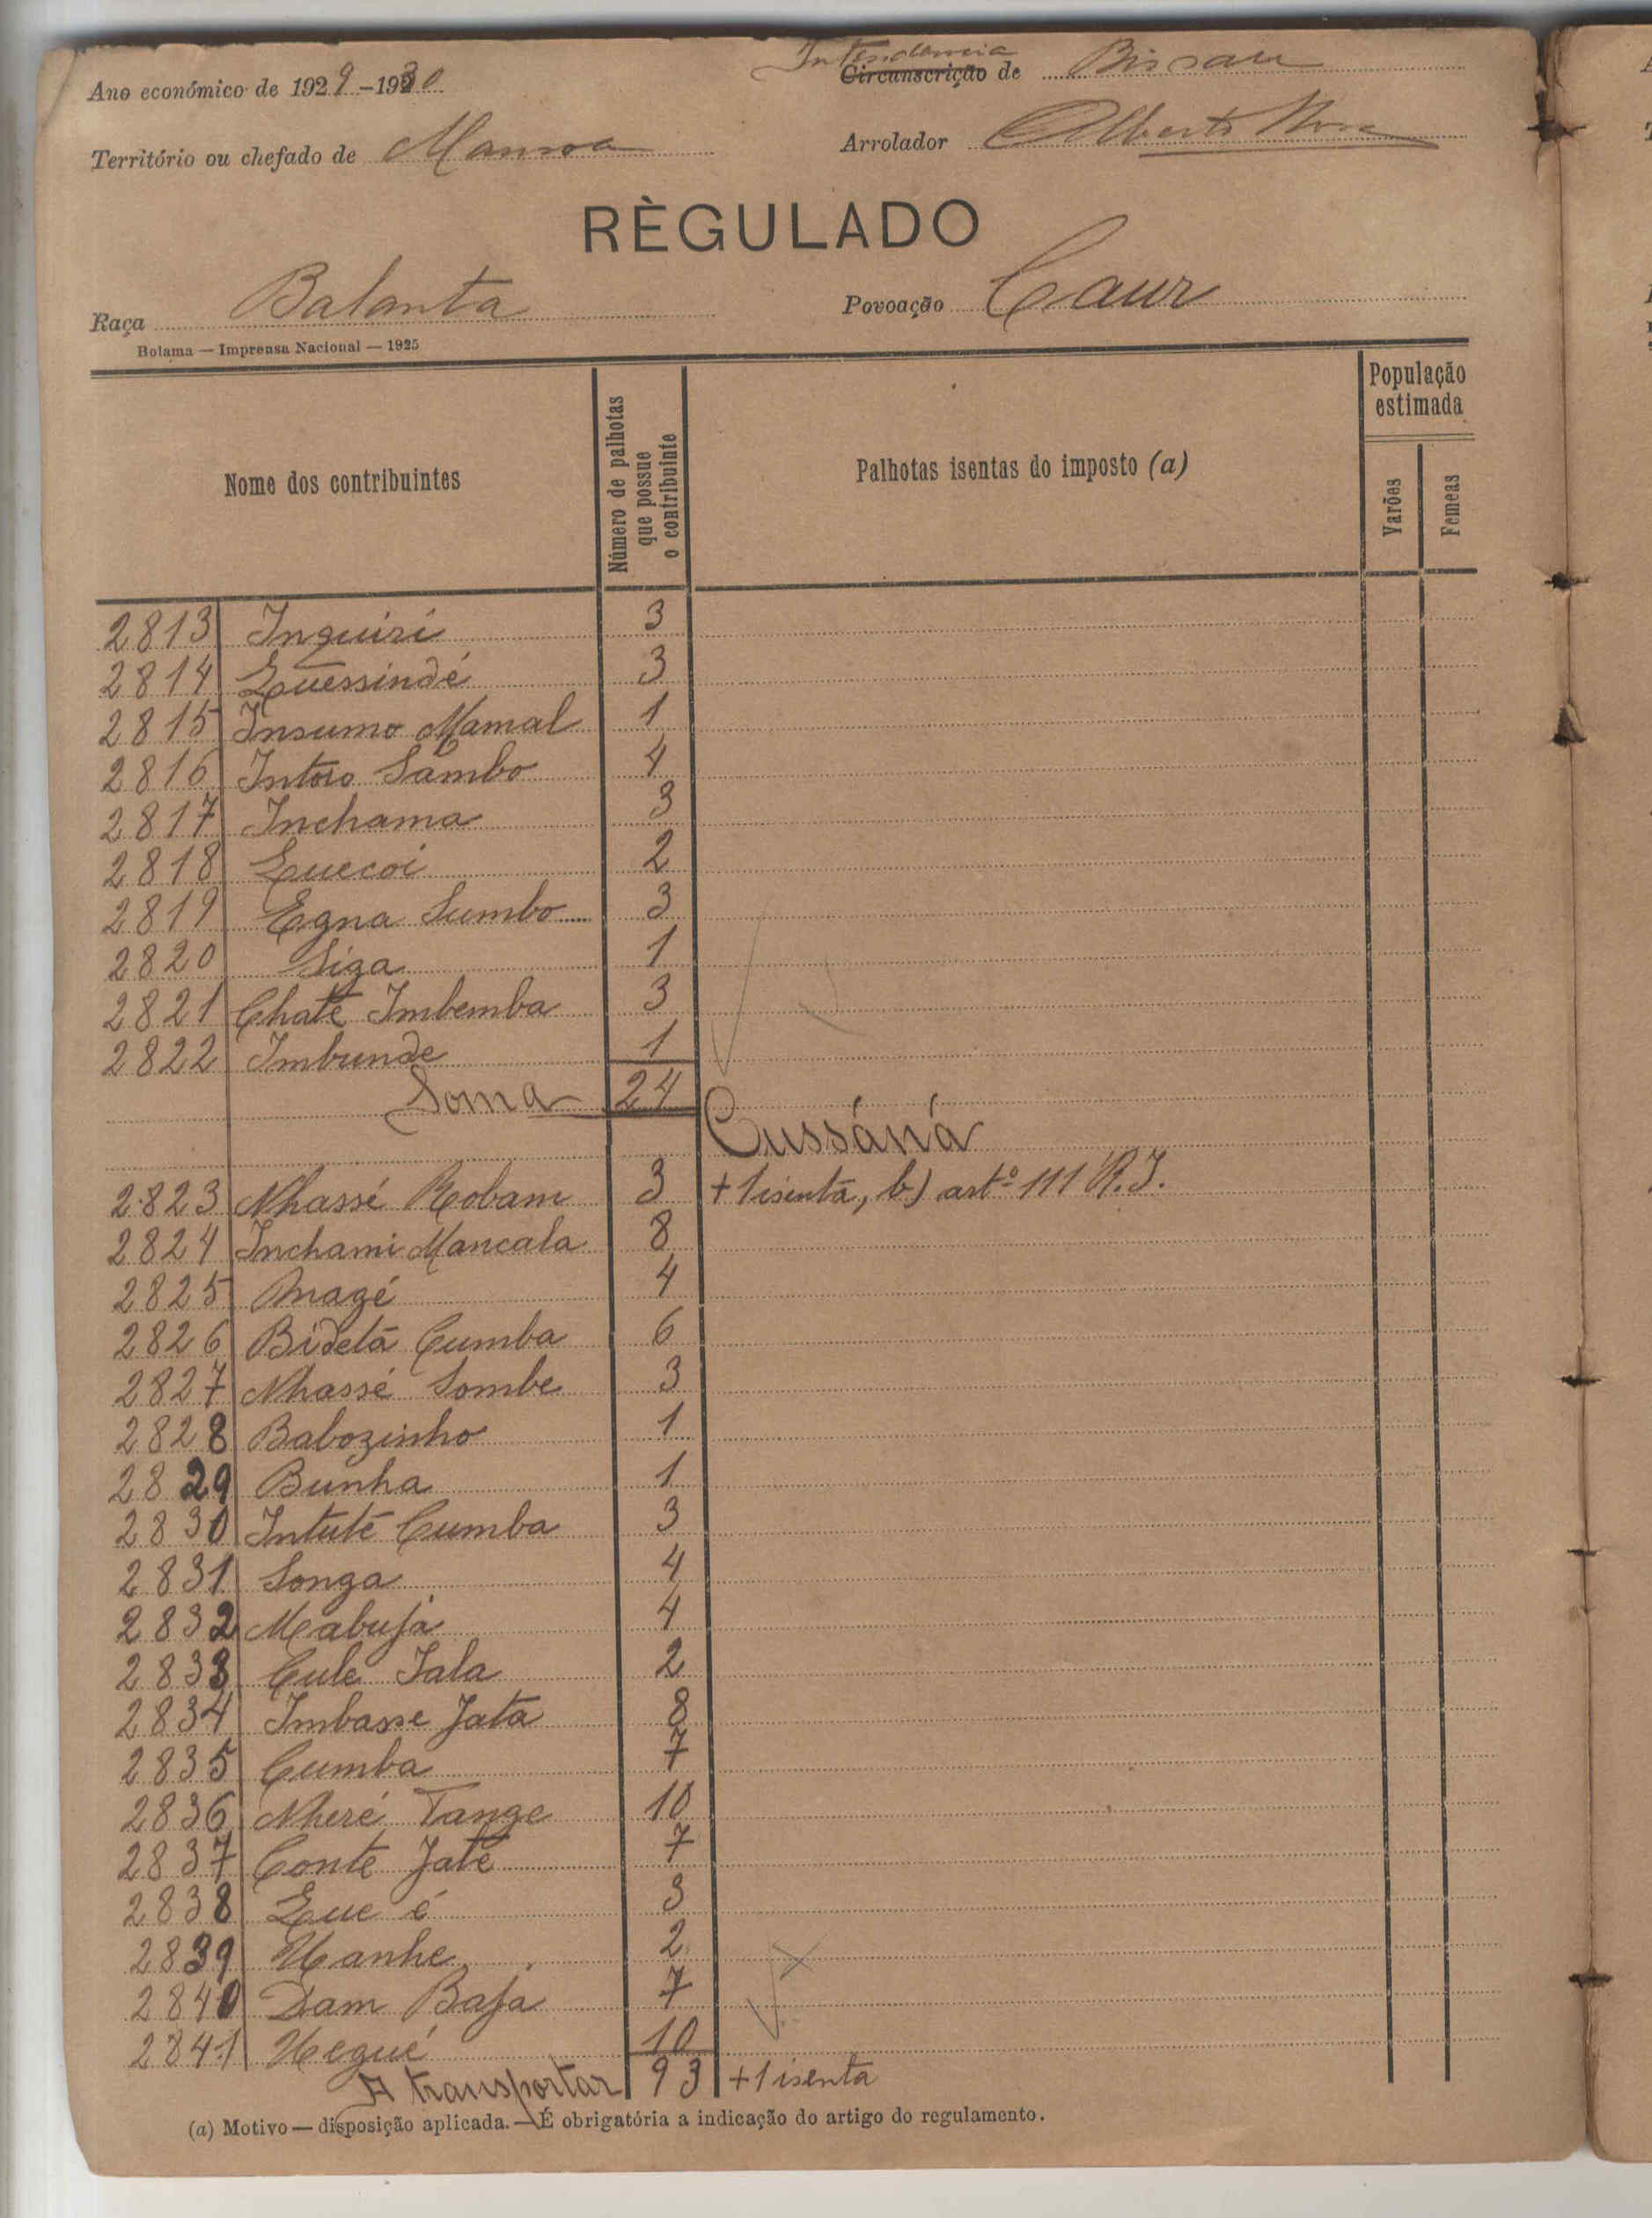 Intendencia
Ano económico de 1929-1930 Circunscrição de Bissau
Território ou chefado de Mansoa Arrolador Alberto
RÈGULADO
Raça Balanta Povoação Caur
Bolama — Imprensa Nacional — 1925
Nome dos contribuintes
Número de palhotas que possue o contribuinte
Palhotas isentas do imposto (a)
População estimada
Varões
Femeas
2813 Inquiri 3
2814 Quessindé 3
2815 Insumo Mamal 1
2816 Intoio Sambo 4
2817 Inchama 3
2818 Quecoi 2
2819 Egna Sumbo 3
2820 Siga 1
2821 Chate Imbemba 3
2822 Imbunde 1
Soma 24
Cussáná
2823 Nhassé Robam 3 +1 isenta, b) artº 111 R.I.
2824 Inchami Mancala 8
2825 Anagé 4
2826 Bidetá Cumba 6
2827 Nhassé Sombe 3
2828 Babozinho 1
2829 Bunha 1
2830 Intuté Cumba 3
2831 Songa 4
2832 Mabujá 4
2833 Cule Iala 2
2834 Imbasse Jata 8
2835 Cumba 7
2836 Nheré Tange 10
2837 Conte Jaté 7
2838 Que é 3
2839 Uanhe 2
2840 Dam Bafa 7
2841 Uegué 10
A transportar 93 +1 isenta
(a) Motivo — disposição aplicada. — É obrigatória a indicação do artigo do regulamento.